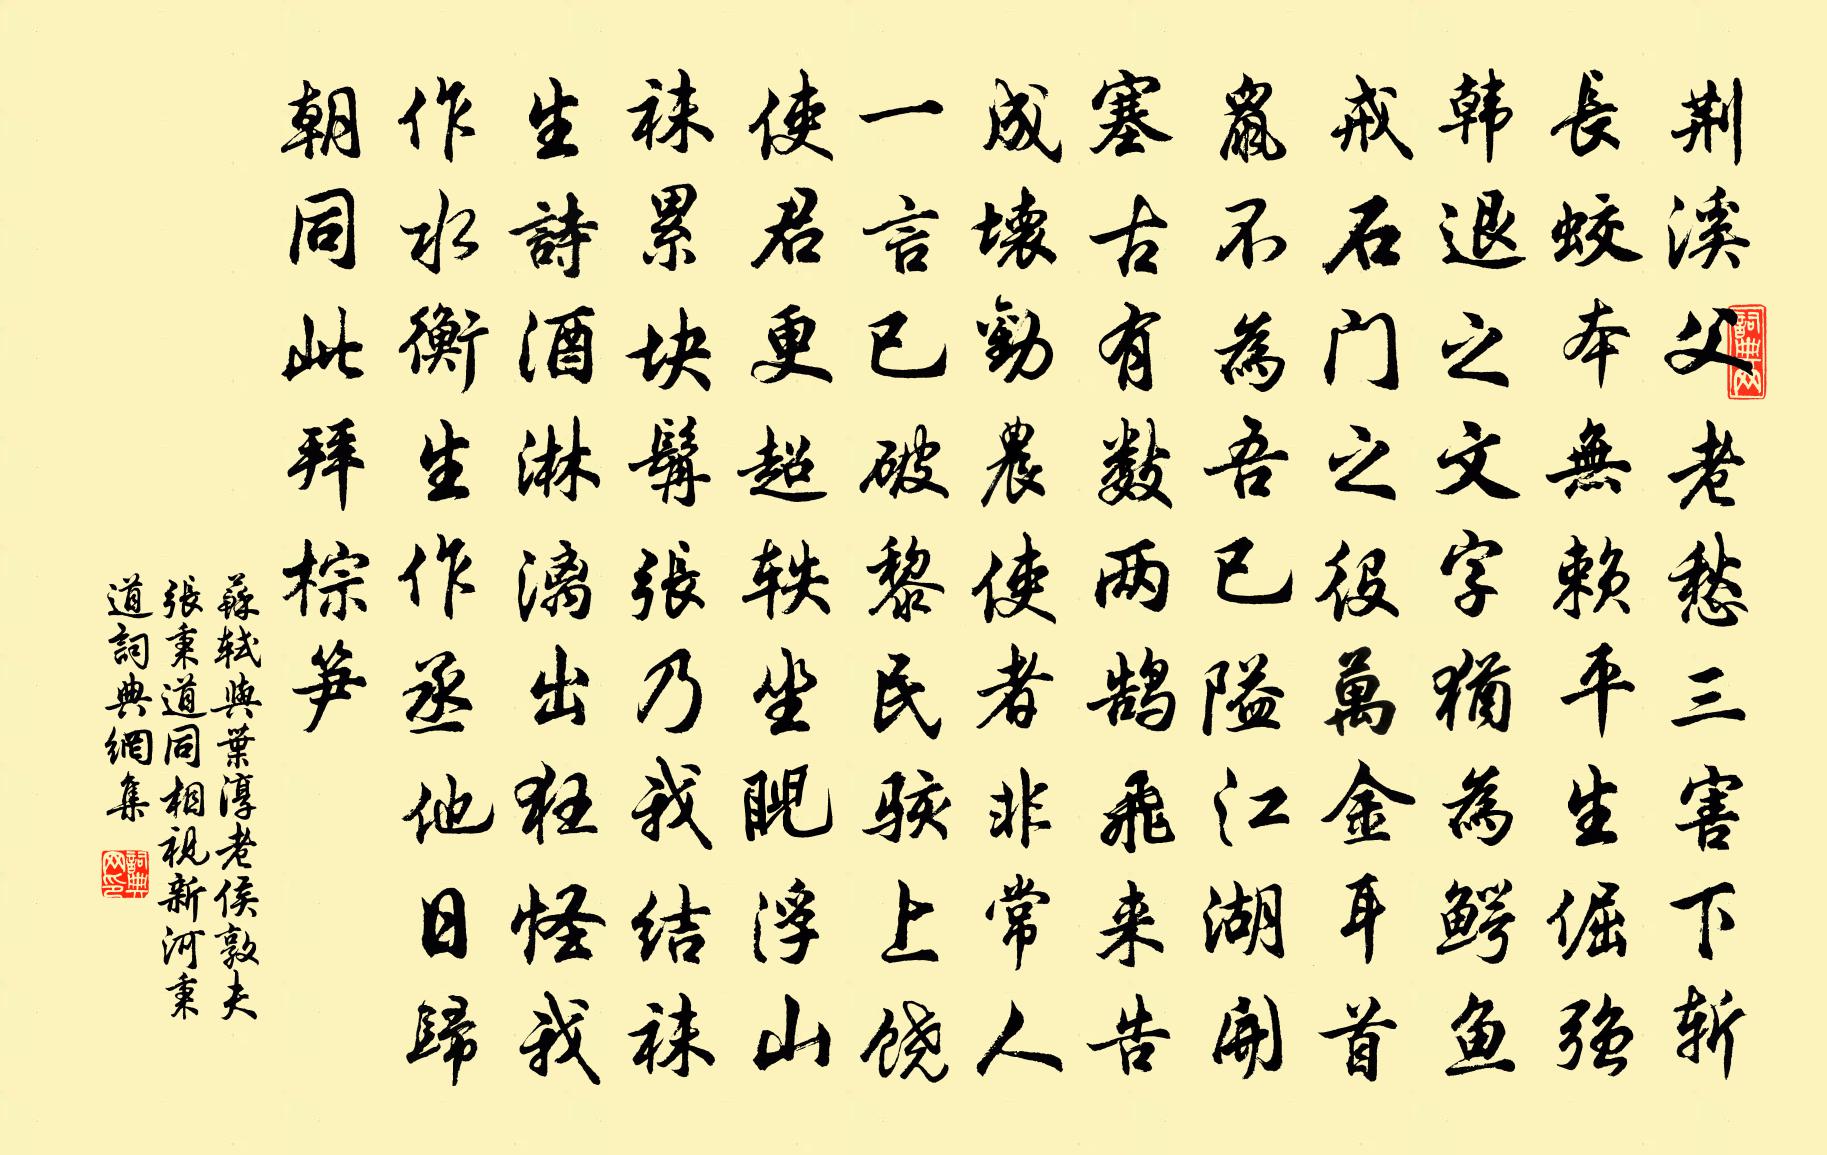 荆溪父老愁三害下斩
長蛟本無赖平生倔强
韩退之文字猶為鳄鱼
戒石门之役萬金耳首
鼠不為吾已隘江湖開
塞古有数两鹄飛来告
成壞勸農使者非常人
一言已破黎民骇上饶
使君更超轶坐睨浮山
袜累块髯張乃我结袜
生詩酒淋漓出狂怪我
作水衡生作丞他日歸
朝同此拜棕笋
蘇轼與葉淳老侯敦夫
張秉道同相視新河秉
道詞典網集
詞典网
詞典网印